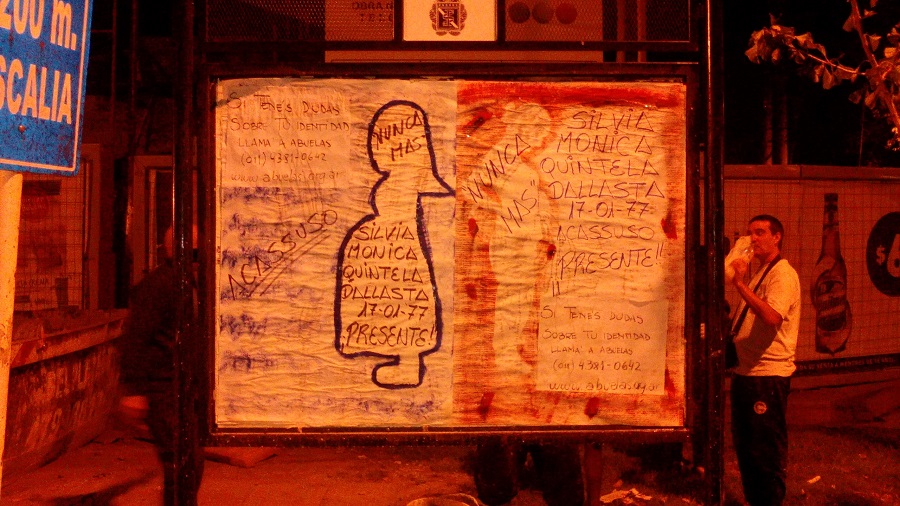 200 m.
SCALIA
SI TENES DUDAS
SOBRE TU IDENTIDAD
LLAMA A ABUELAS
(011) 4381-0642
ACASSUSO
NUNCA
MAS
SILVIA
MONICA
QUINTELA
DALLASTA
17-01-77
PRESENTE!
NUNCA
MAS!
SILVIA
MONICA
QUINTELA
DALLASTA
17-01-77
ACASSUSO
¡¡PRESENTE!!
SI TENES DUDAS
SOBRE TU IDENTIDAD
LLAMA A ABUELAS
(011) 4381-0642